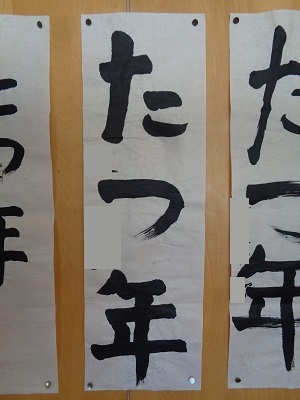 たつ年
たつ年
つ年